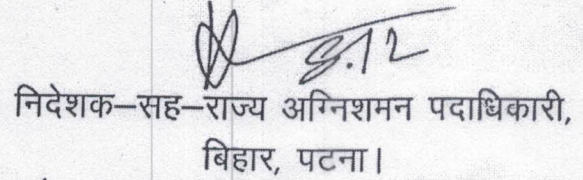 8.12
निदेशक–सह–राज्य अग्निशमन पदाधिकारी,
बिहार, पटना।